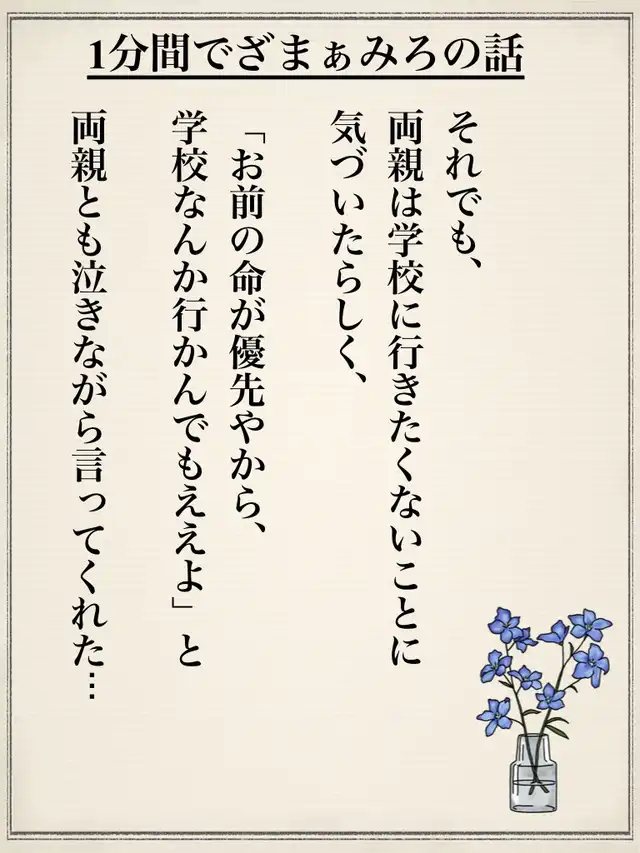 1分間でざまぁみろの話
それでも、
両親は学校に行きたくないことに
気づいたらしく、
「お前の命が優先やから、
学校なんか行かんでもええよ」と
両親とも泣きながら言ってくれた…